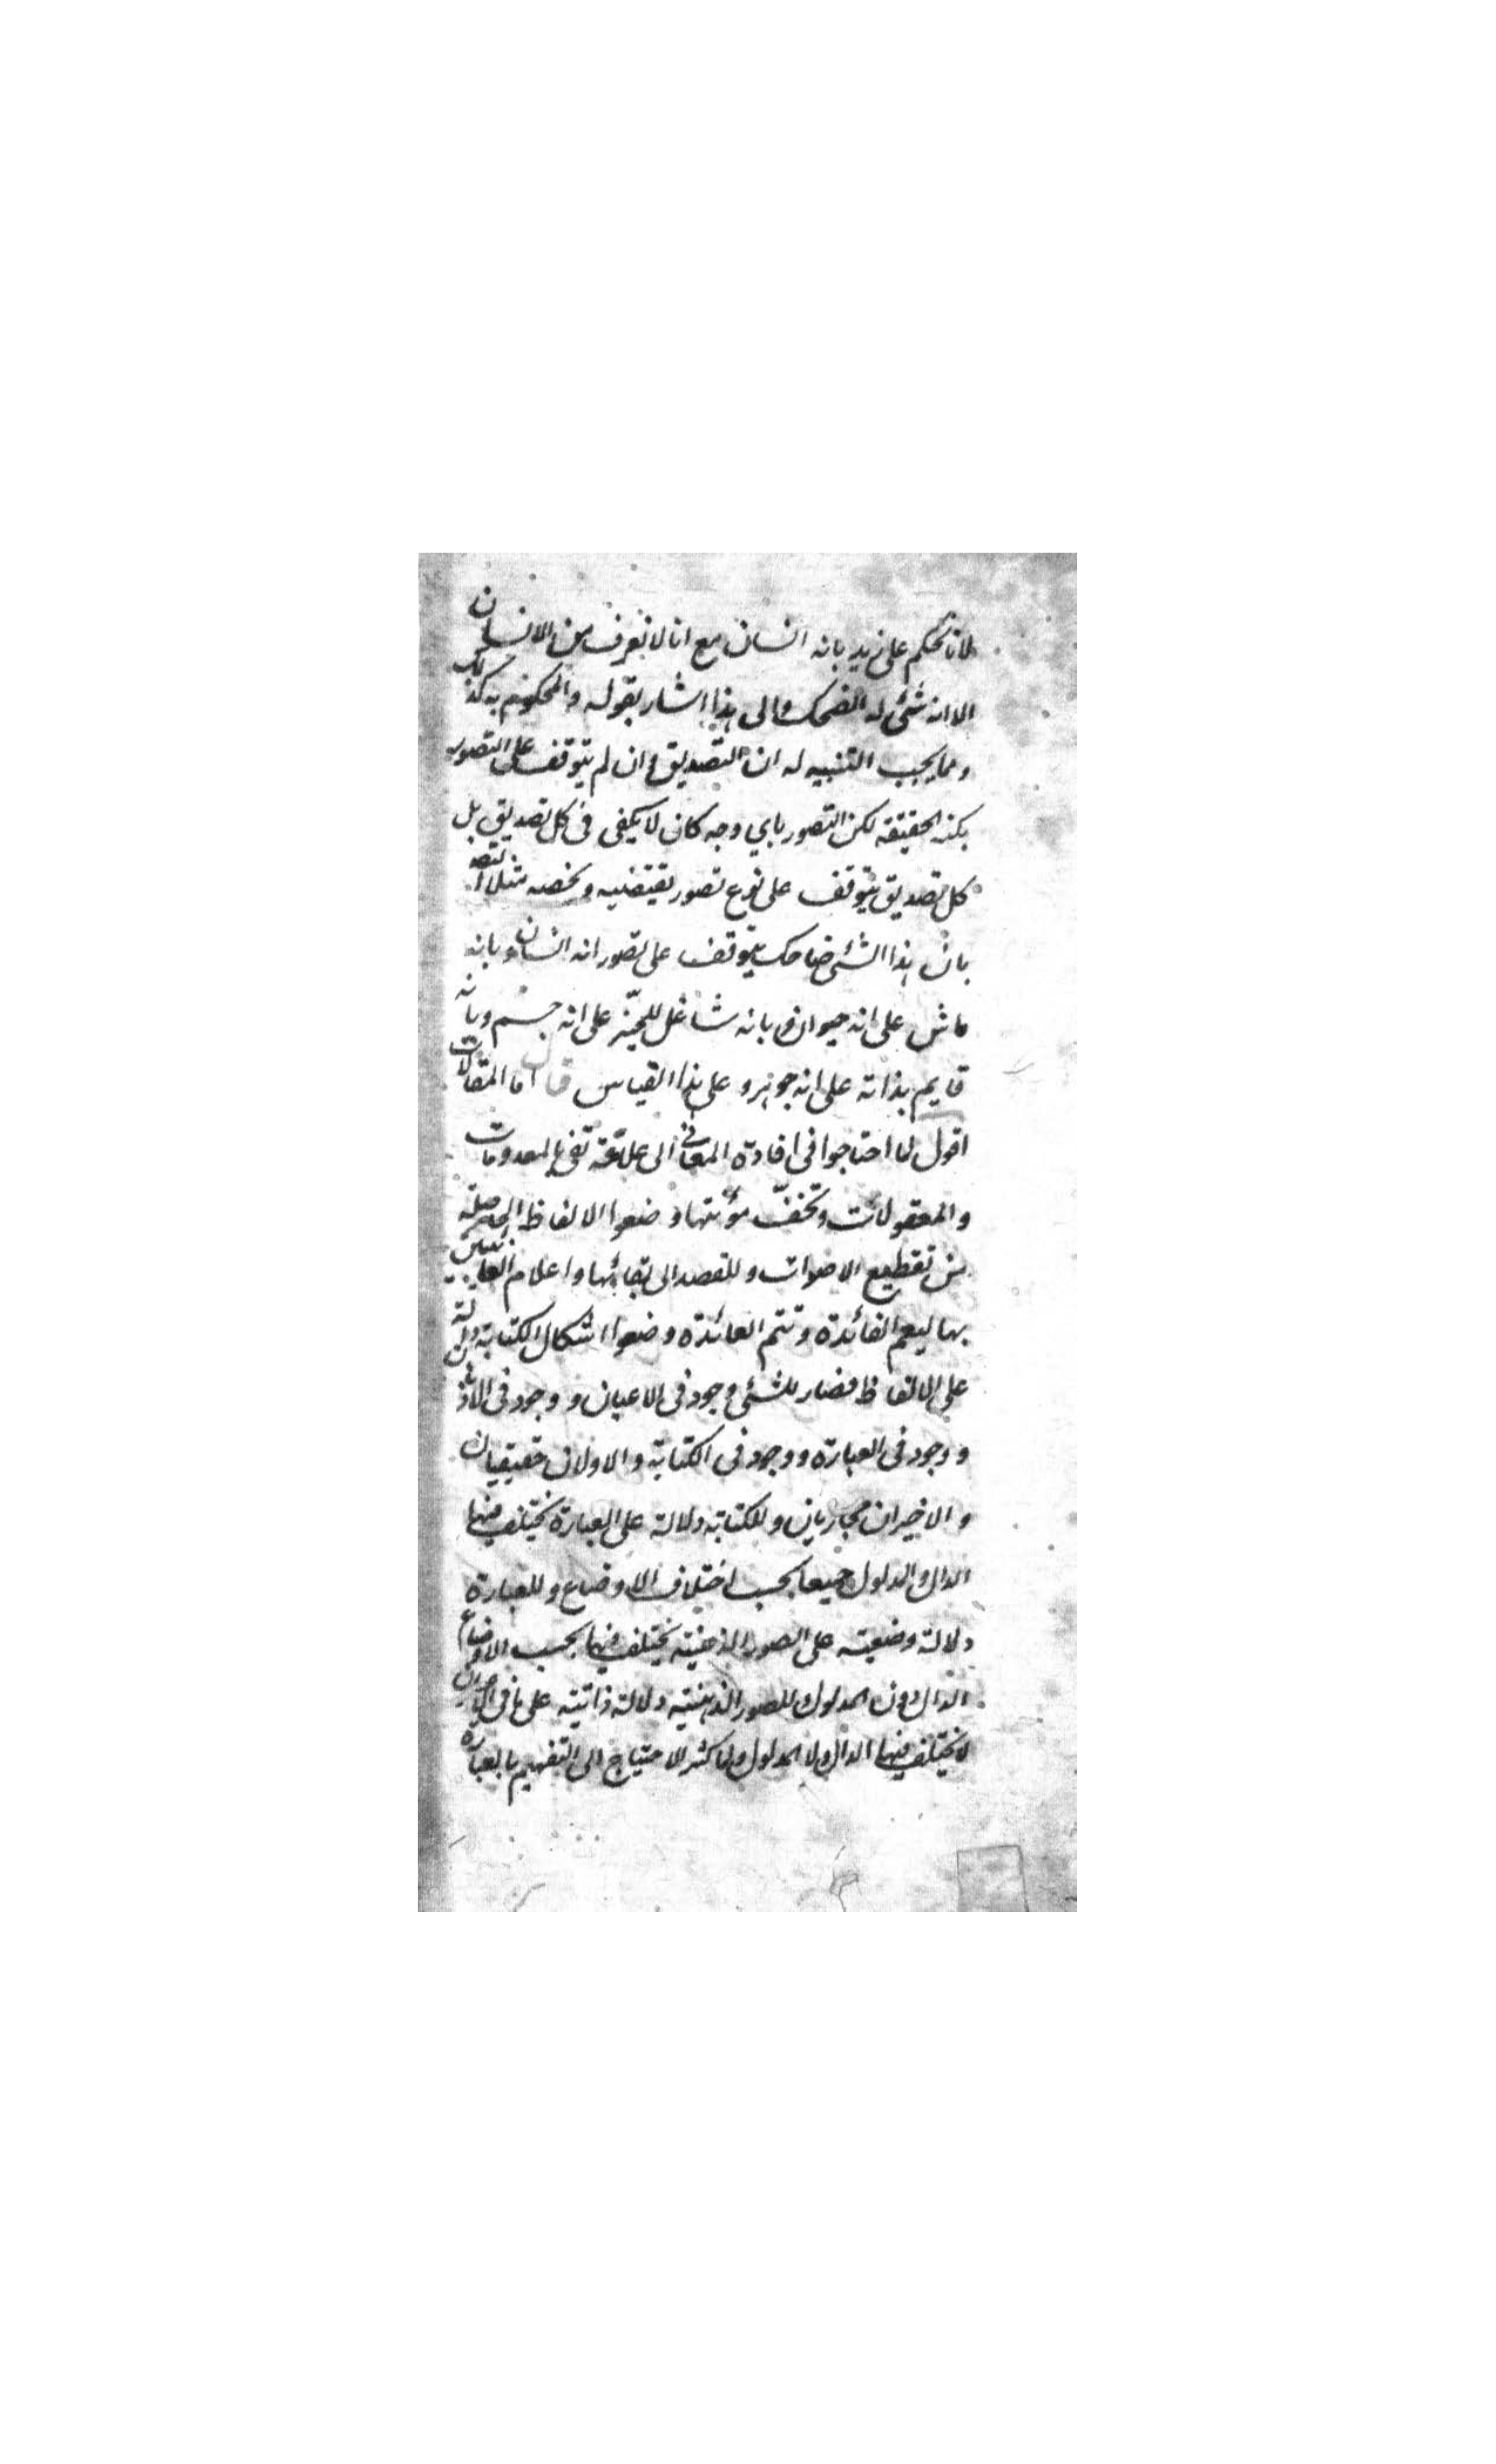 لانا نحكم على زيد بانه انسان مع انا لا نعرف من الانسان
الا انه شئ له الضحك والى هذا اشار بقوله والمحكوم به كذلك
ومما يجب التنبيه له ان التصديق وان لم يتوقف على التصور
بكنه الحقيقة لكن التصور باي وجه كان لا يكفي في كل تصديق بل
كل تصديق يتوقف على نوع تصور يقتضيه ويخصه مثلا التصد
بان هذا الشئ ضاحك يتوقف على تصور انه انسان وبانه
ماش على انه حيوان وبانه شاغل للحيز على انه جسم وبانه
قايم بذاته على انه جوهر وعلى هذا القياس قال اما المقالات
اقول لما احتاجوا في افادة المعاني الى علامة تفي بالمعدومات
والمعقولات وتخف مؤنتها وضعوا الالفاظ الحاصلة
من تقطيع الاصوات وللقصد الى بقائها واعلام الغائبين
بها ليعم الفائدة وتتم العائدة وضعوا اشكال الكتابة دالة
على الالفاظ فصار للشئ وجود في الاعيان ووجود في الاذهان
ووجود في العبارة ووجود في الكتابة والاولان حقيقيان
والاخيران مجازيان وللكتابة دلالة على العبارة يختلف فيها
الدال والمدلول جميعا بحسب اختلاف الاوضاع وللعبارة
دلالة وضعية على الصور الذهنية يختلف فيها بحسب الاوضاع
الدال دون المدلول وللصور الذهنية دلالة ذاتية على ما في الاعيان
لا يختلف فيها الدال ولا المدلول ولما كثر الاحتياج الى التفهيم بالعبارة